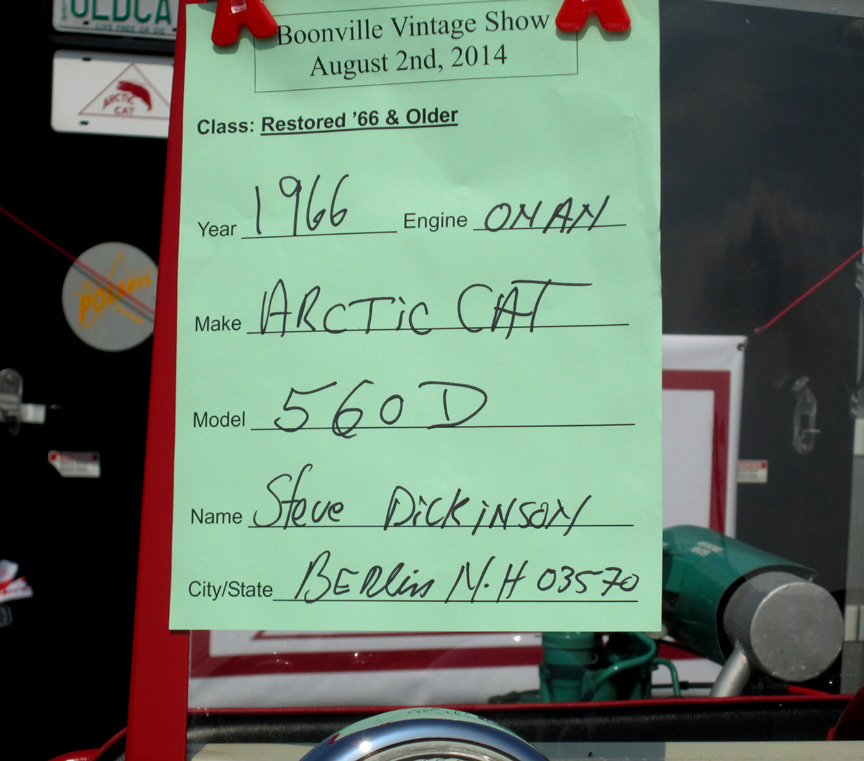 OLDCA
LIVE FREE OR DIE
ARCTIC
CAT
POLARIS
Boonville Vintage Show
August 2nd, 2014
Class: Restored '66 & Older
Year 1966 Engine ONAN
Make ARCTIC CAT
Model 560D
Name Steve Dickinson
City/State Berlin N.H 03570